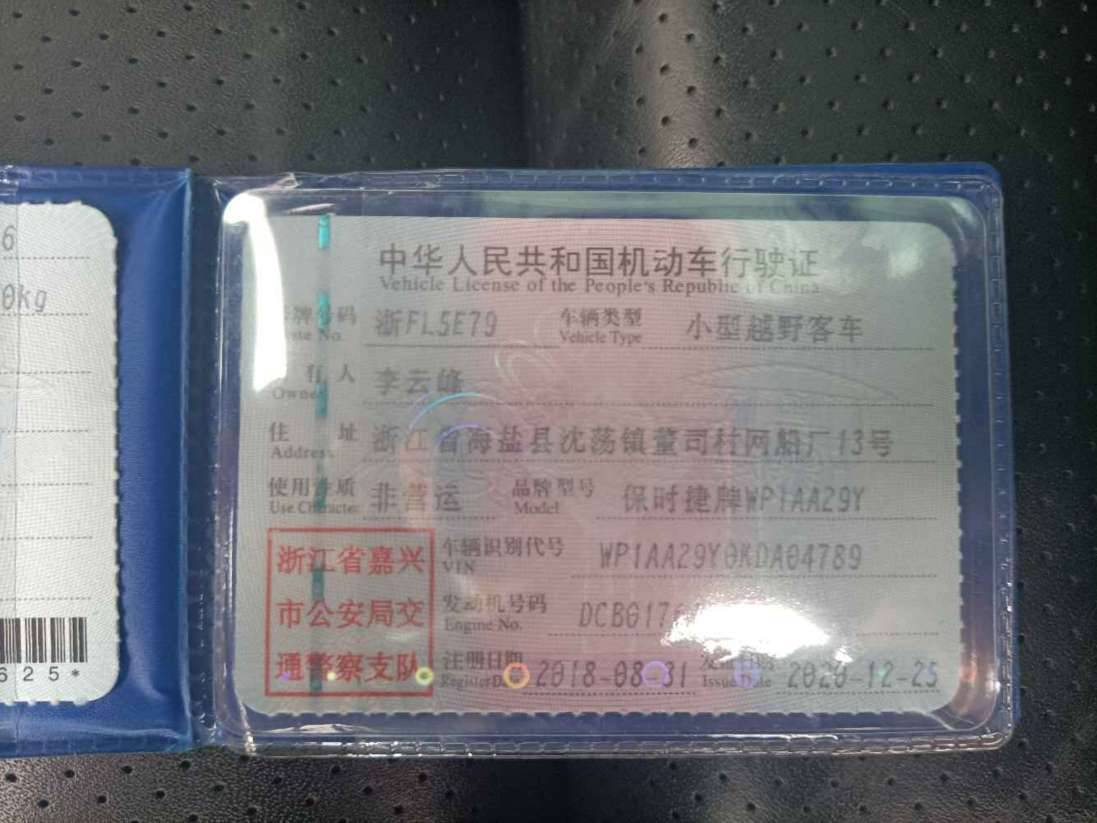 6
0kg
625*
中华人民共和国机动车行驶证
Vehicle License of the People's Republic of China
号牌号码 浙FL5E79 车辆类型 小型越野客车
Plate No. Vehicle Type
所有人 李云峰
Owner
住址 浙江省海盐县沈荡镇董司村网船厂13号
Address
使用性质 非营运 品牌型号 保时捷牌WP1AA29Y
Use Character Model
浙江省嘉兴
市公安局交
通警察支队
车辆识别代号 WP1AA29Y0KDA04789
VIN
发动机号码 DCB0176
Engine No.
注册日期 2018-08-31 发证日期 2020-12-25
Register Date Issue Date